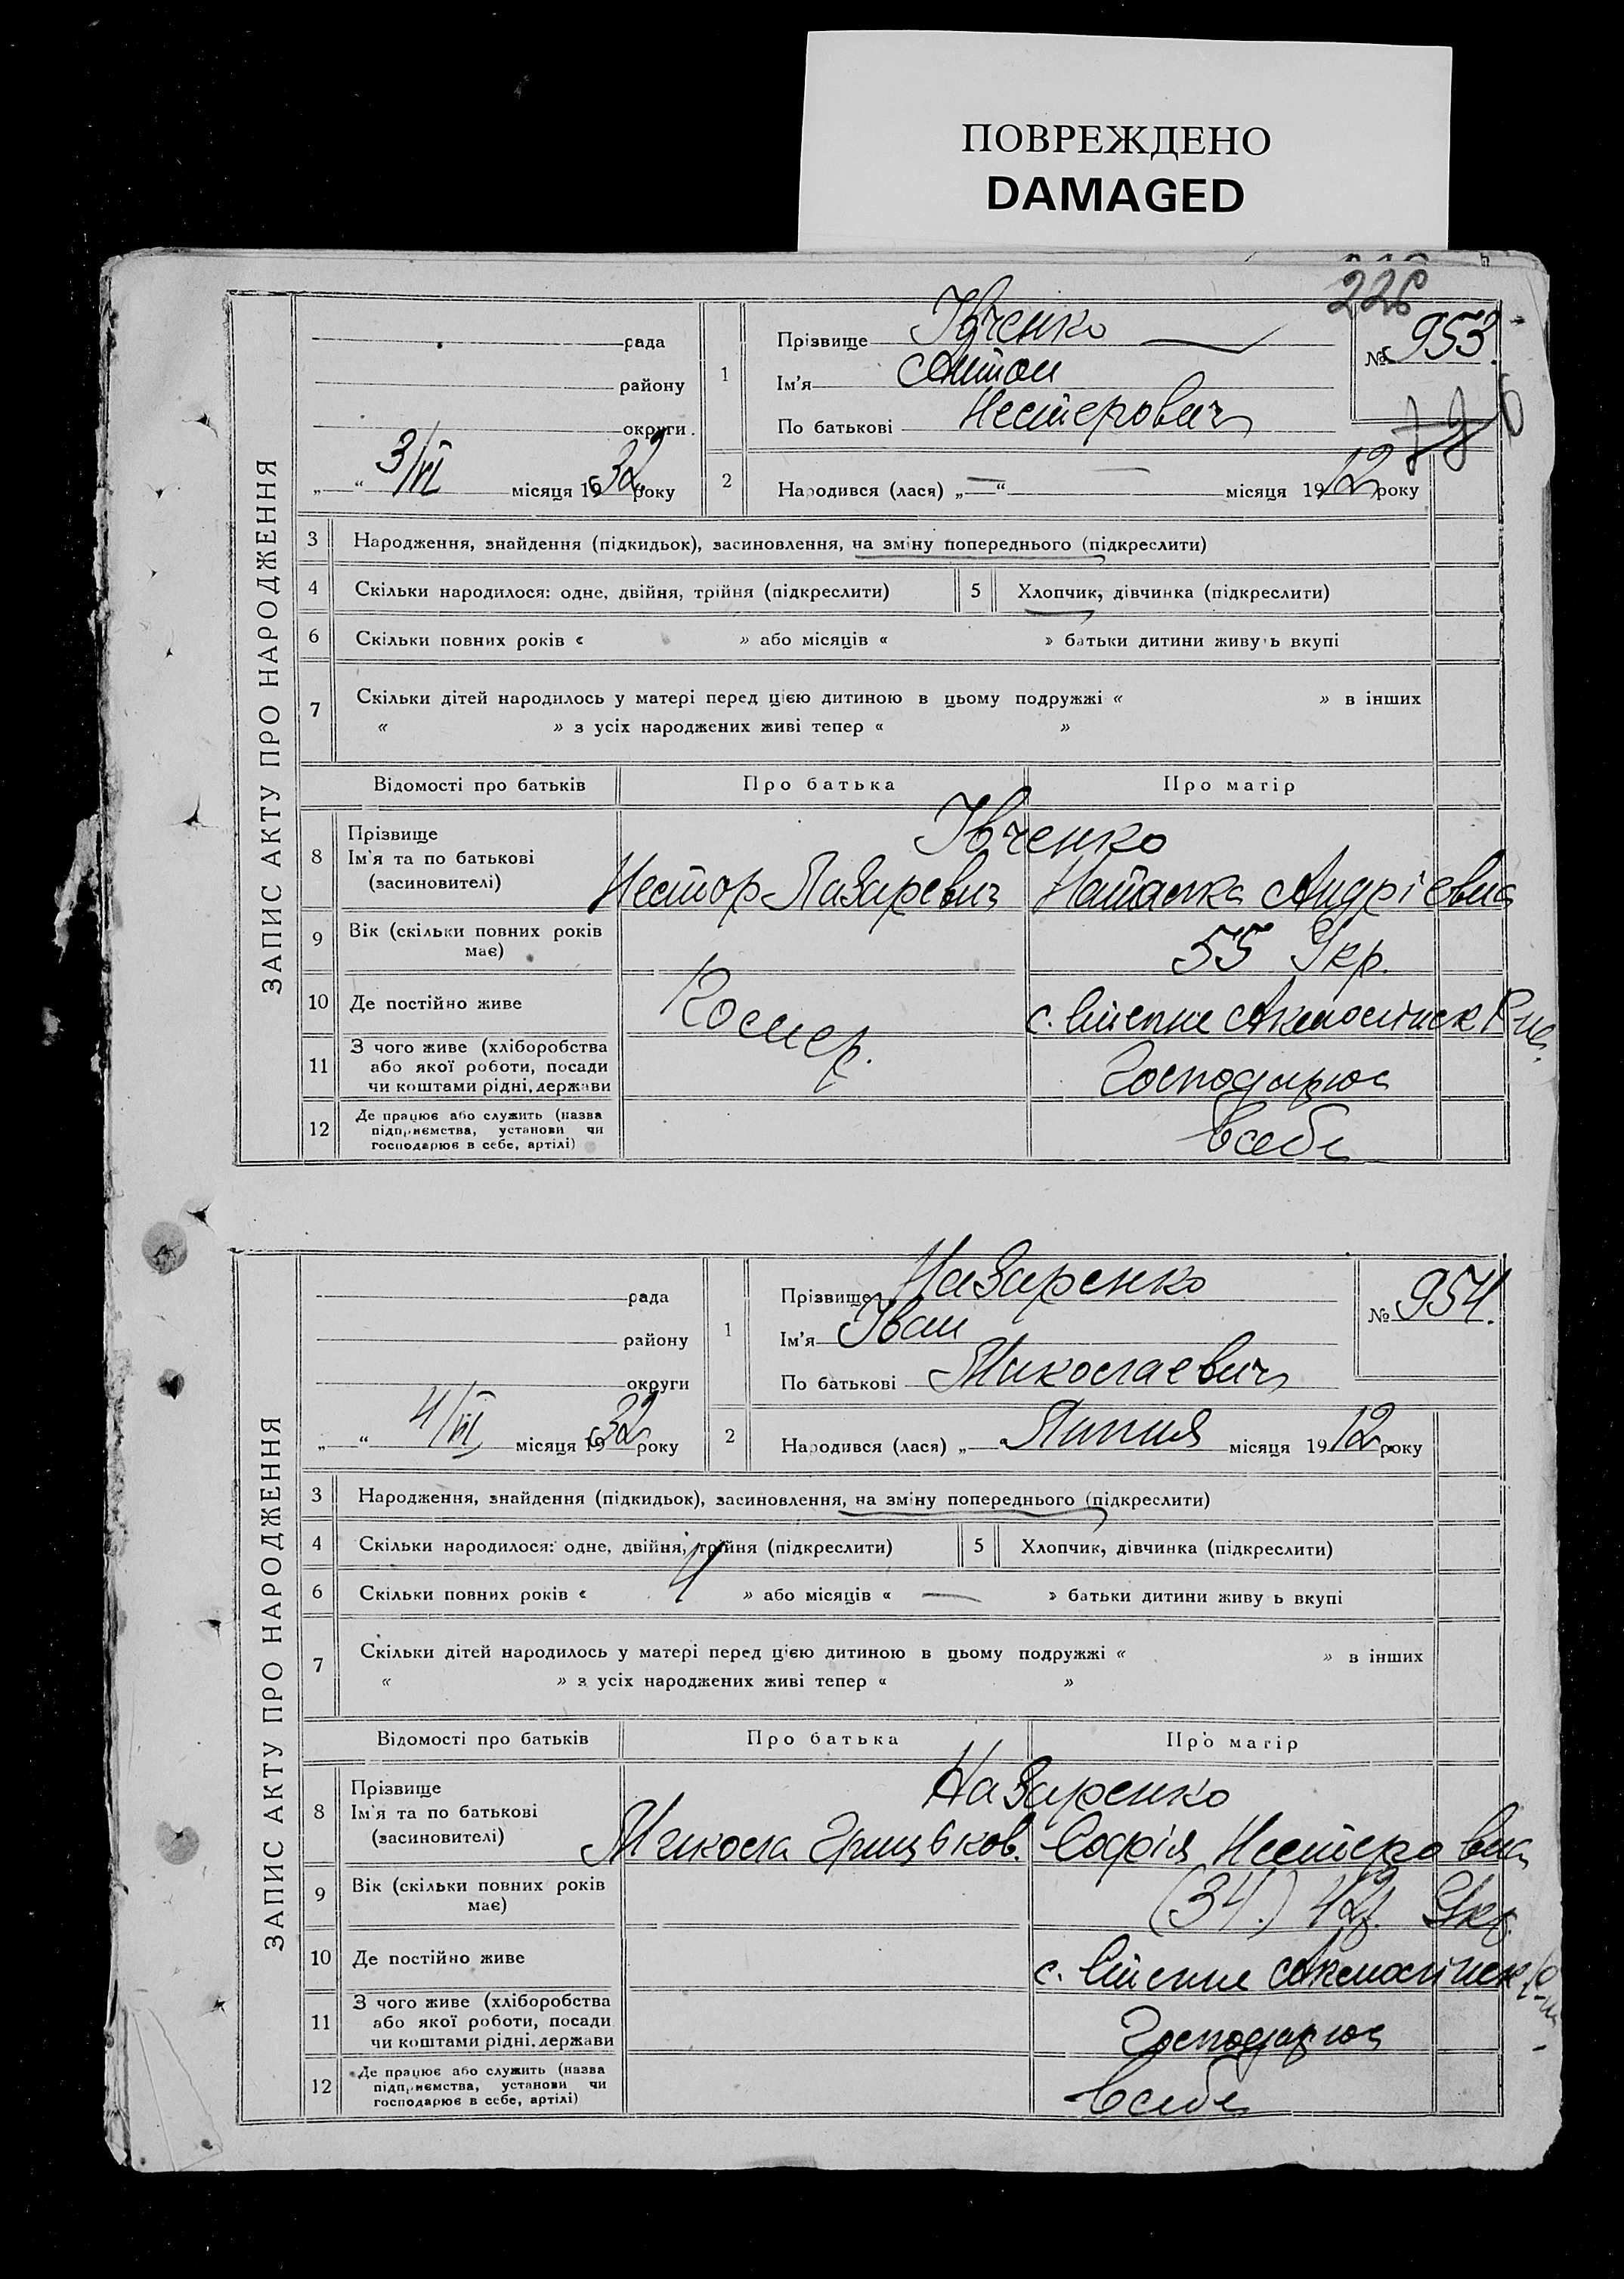 ПОВРЕЖДЕНО
DAMAGED
226
ЗАПИС АКТУ ПРО НАРОДЖЕННЯ
рада
району
округи
3/VI місяця 1932 року
1 Прізвище Івченко
Ім'я Антон
По батькові Нестерович
№ 953.
2 Народився (лася) „—“ — місяця 1912 року
3 Народження, знайдення (підкидьок), засиновлення, на зміну попереднього (підкреслити)
4 Скільки народилося: одне, двійня, трійня (підкреслити) 5 Хлопчик, дівчинка (підкреслити)
6 Скільки повних років « » або місяців « » батьки дитини живуть вкупі
7 Скільки дітей народилось у матері перед цією дитиною в цьому подружжі « » в інших
« » з усіх народжених живі тепер « »
Відомості про батьків Про батька Про матір
8 Прізвище Івченко
Ім'я та по батькові
(засиновителі) Нестор Лазаревич Наталка Андрієвна
9 Вік (скільки повних років
має) 55 Укр.
10 Де постійно живе Помер. с. Степне
11 З чого живе (хліборобства
або якої роботи, посади
чи коштами рідні, держави Господарює
12 Де працює або служить (назва
підприємства, установи чи
господарює в себе, артілі) в себе
ЗАПИС АКТУ ПРО НАРОДЖЕННЯ
рада
району
округи
4/VI місяця 1932 року
1 Прізвище Назаренко
Ім'я Іван
По батькові Миколаевич
№ 954.
2 Народився (лася) „ Липня місяця 1912 року
3 Народження, знайдення (підкидьок), засиновлення, на зміну попереднього (підкреслити)
4 Скільки народилося: одне, двійня, трійня (підкреслити) 5 Хлопчик, дівчинка (підкреслити)
6 Скільки повних років « » або місяців « — » батьки дитини живу ь вкупі
7 Скільки дітей народилось у матері перед цією дитиною в цьому подружжі « » в інших
« » з усіх народжених живі тепер « »
Відомості про батьків Про батька Про матір
8 Прізвище Назаренко
Ім'я та по батькові
(засиновителі) Микола Грицьков. Софія Нестеровна
9 Вік (скільки повних років
має) (34.) 42. Укр.
10 Де постійно живе с. Степне
11 З чого живе (хліборобства
або якої роботи, посади
чи коштами рідні, держави Господарює
12 Де працює або служить (назва
підприємства, установи чи
господарює в себе, артілі) в себе